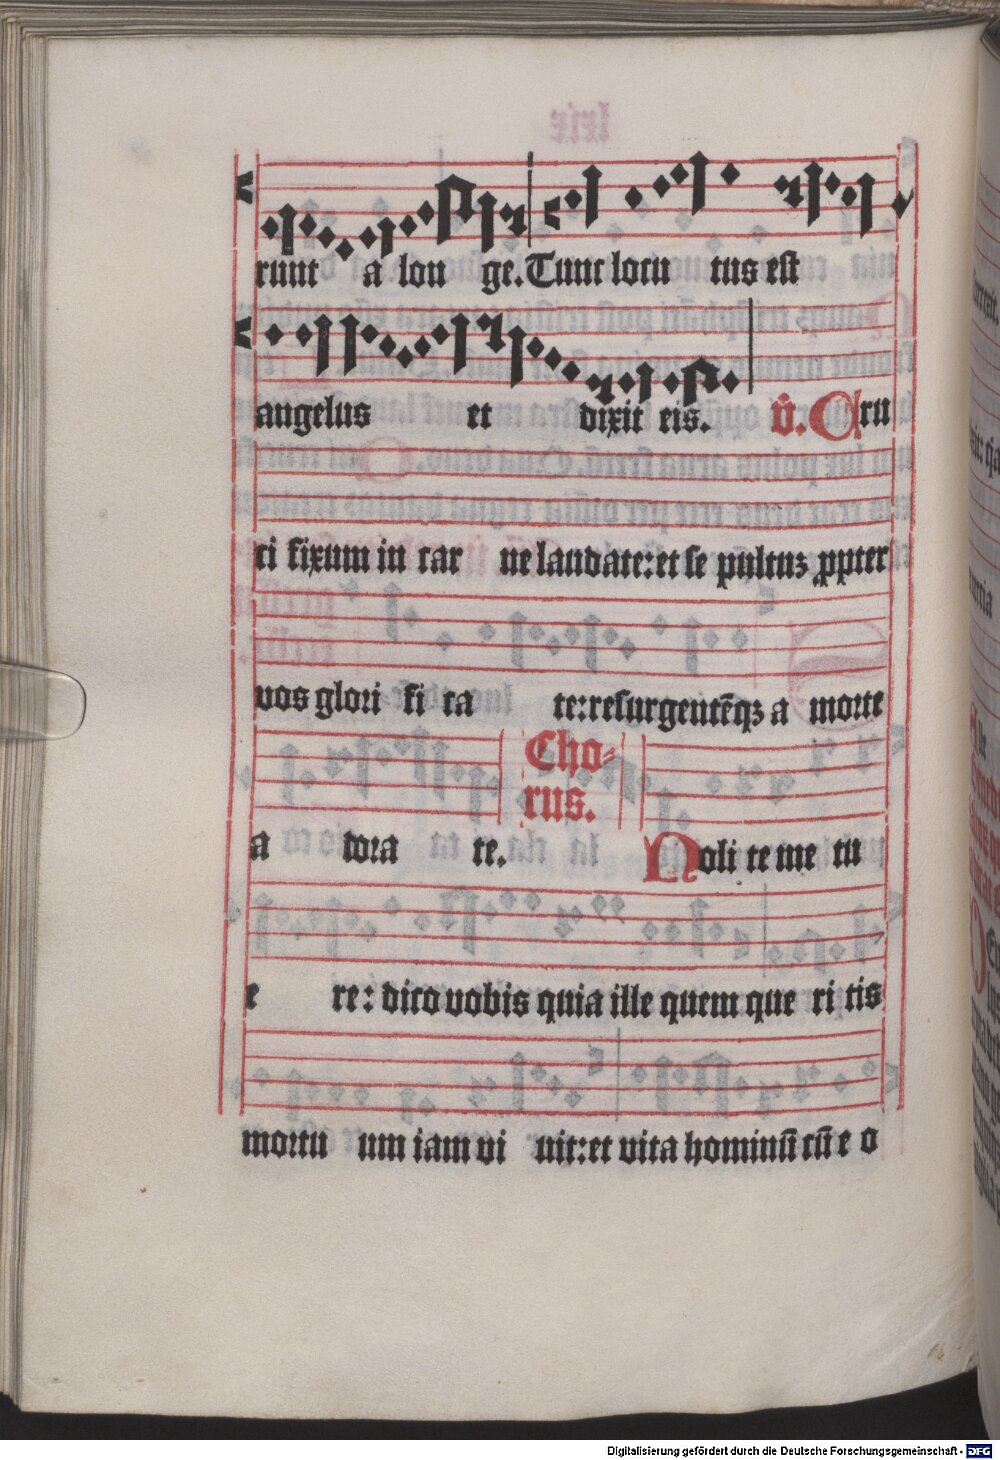 runt a lon ge. Tunc locu tus est
angelus et dixit eis. v̄. Cru
ci fixum in car ne laudate: et se pultuꝫ ꝓpter
vos glori fi ca te: resurgentēqꝫ a morte
Cho-
rus.
a dora te. Noli te me tu
e re: dico vobis quia ille quem que ri tis
mortu um iam vi uit: et vita hominū cū e o
Digitalisierung gefördert durch die Deutsche Forschungsgemeinschaft - DFG